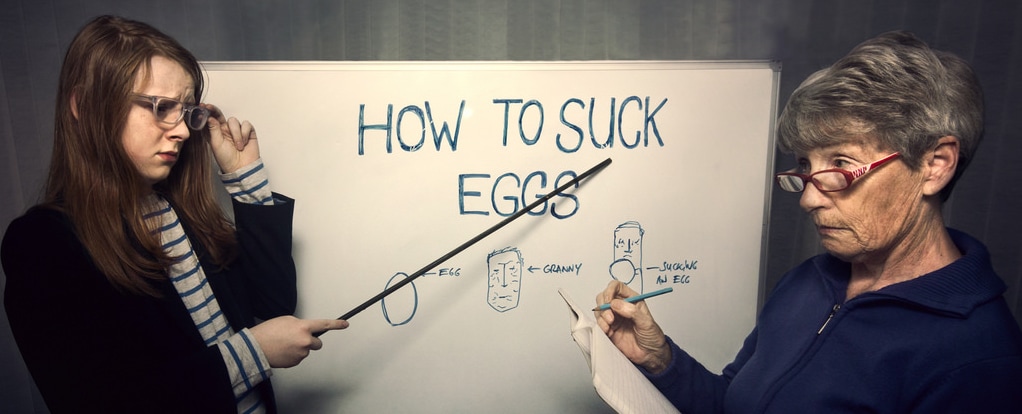 HOW TO SUCK
EGGS
EGG
GRANNY
SUCKING
AN EGG